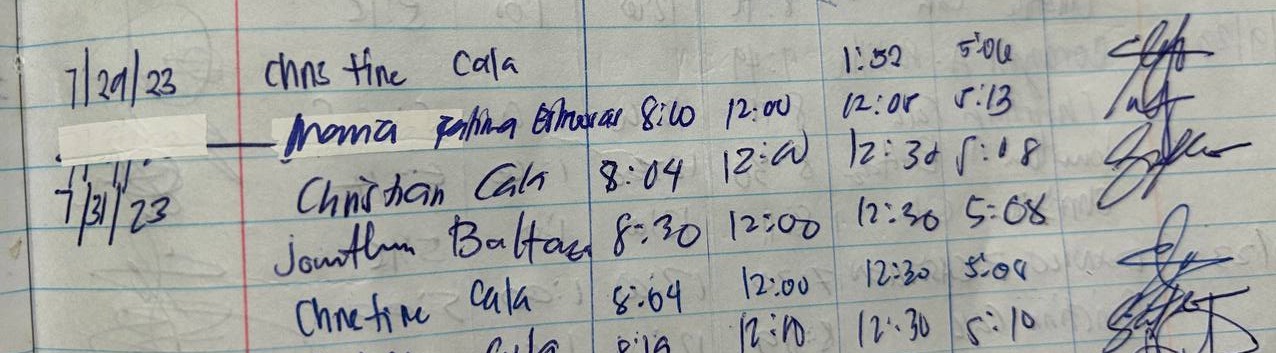 7/29/23 Christine Cala 1:52 5:06
Maria Fatima 8:10 12:00 12:08 5:13
Christian Cala 8:04 12:00 12:30 5:08
7/31/23
Jonathan Baltazar 8:30 12:00 12:30 5:08
Christine Cala 8:04 12:00 12:30 5:08
Cala 12:10 12:30 5:10